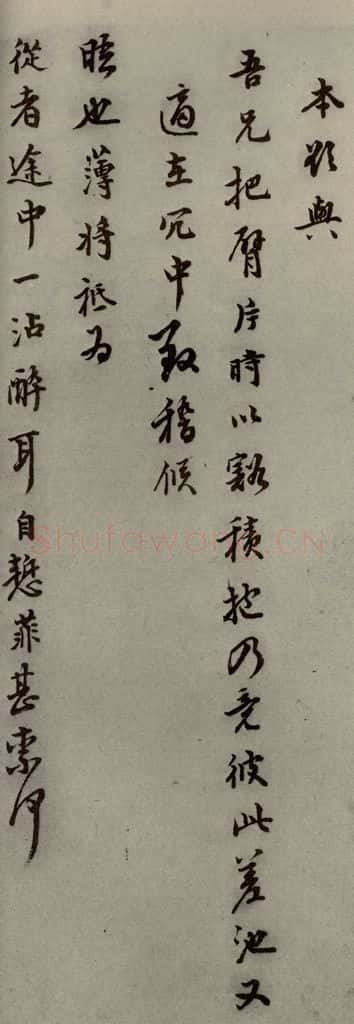 本欲與
吾兄把臂片時以豁積抱乃竟彼此差池又
適在冗中致稽候
晤也薄將祗為
從者途中一沾醉耳自愧菲甚索何
Shufawang.CN